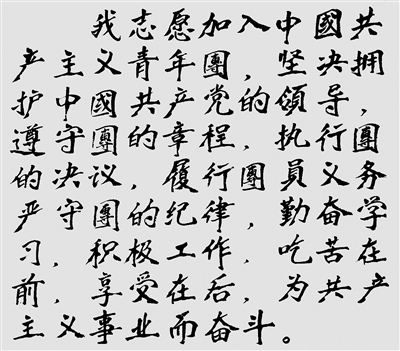 我志愿加入中國共
产主义青年團，坚决拥
护中國共产党的領导，
遵守團的章程，执行團
的决议，履行團員义务，
严守團的纪律，勤奋学
习，积极工作，吃苦在
前，享受在后，为共产
主义事业而奋斗。